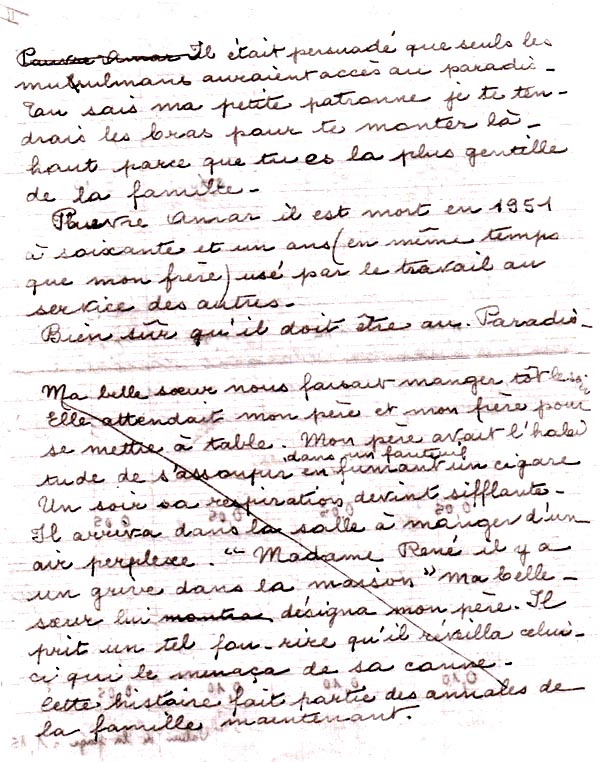 II
Pauvre Amar Il était persuadé que seuls les
musulmans auraient accès au paradis.
Tu sais ma petite patronne je te ten-
drais les bras pour te monter là-
haut parce que tu es la plus gentille
de la famille.
Pauvre Amar il est mort en 1951
à soixante et un ans (en même temps
que mon frère) usé par le travail au
service des autres.
Bien sûr qu'il doit être au Paradis.
Ma belle sœur nous faisait manger tôt le soir
Elle attendait mon père et mon frère pour
se mettre à table. Mon père avait l'habi
dans un fauteuil
tude de s'assoupir en fumant un cigare
Un soir sa respiration devint sifflante.
Il arriva dans la salle à manger d'un
air perplexe. "Madame René il y a
un grive dans la maison" Ma belle-
sœur lui montra désigna mon père. Il
prit un tel fou-rire qu'il réveilla celui-
ci qui le menaça de sa canne.
Cette histoire fait partie des annales de
la famille maintenant.